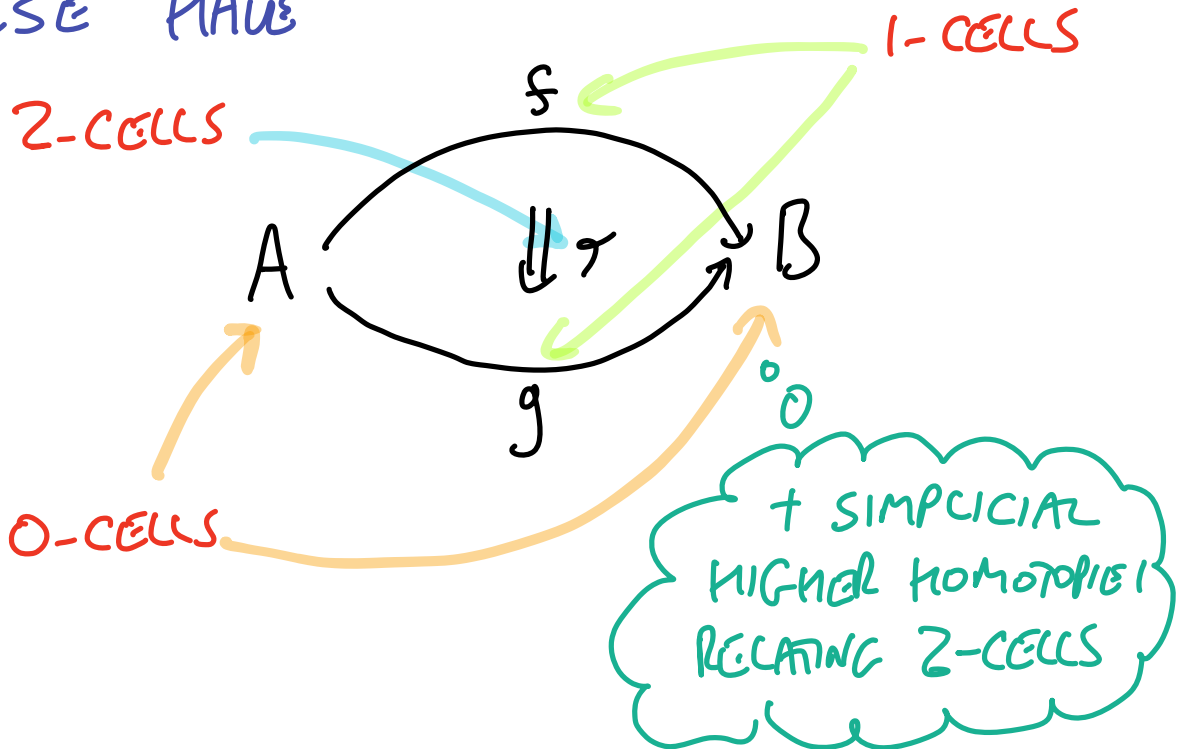 HAVE
1-CELLS
f
2-CELLS
A
B
g
0-CELLS
+ SIMPLICIAL
HIGHER HOMOTOPIES
RELATING 2-CELLS